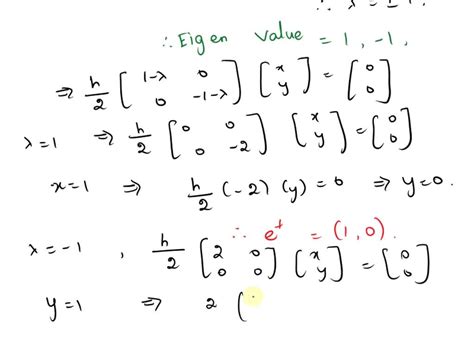 ∴ λ = ±1.
∴ Eigen Value = 1, -1,
⇒ h/2 [1-λ 0; 0 -1-λ] [x; y] = [0; 0]
λ=1 ⇒ h/2 [0 0; 0 -2] [x; y] = [0; 0]
x=1 ⇒ h/2 (-2) (y) = 0 ⇒ y=0.
∴ e^t = (1, 0).
λ = -1, h/2 [2 0; 0 0] [x; y] = [0; 0]
y=1 ⇒ 2 (